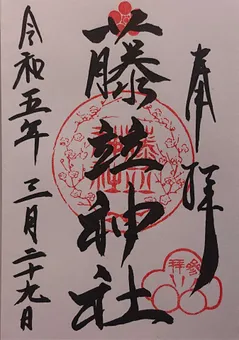 奉拝
藤並神社
令和五年 三月二十九日
参拝